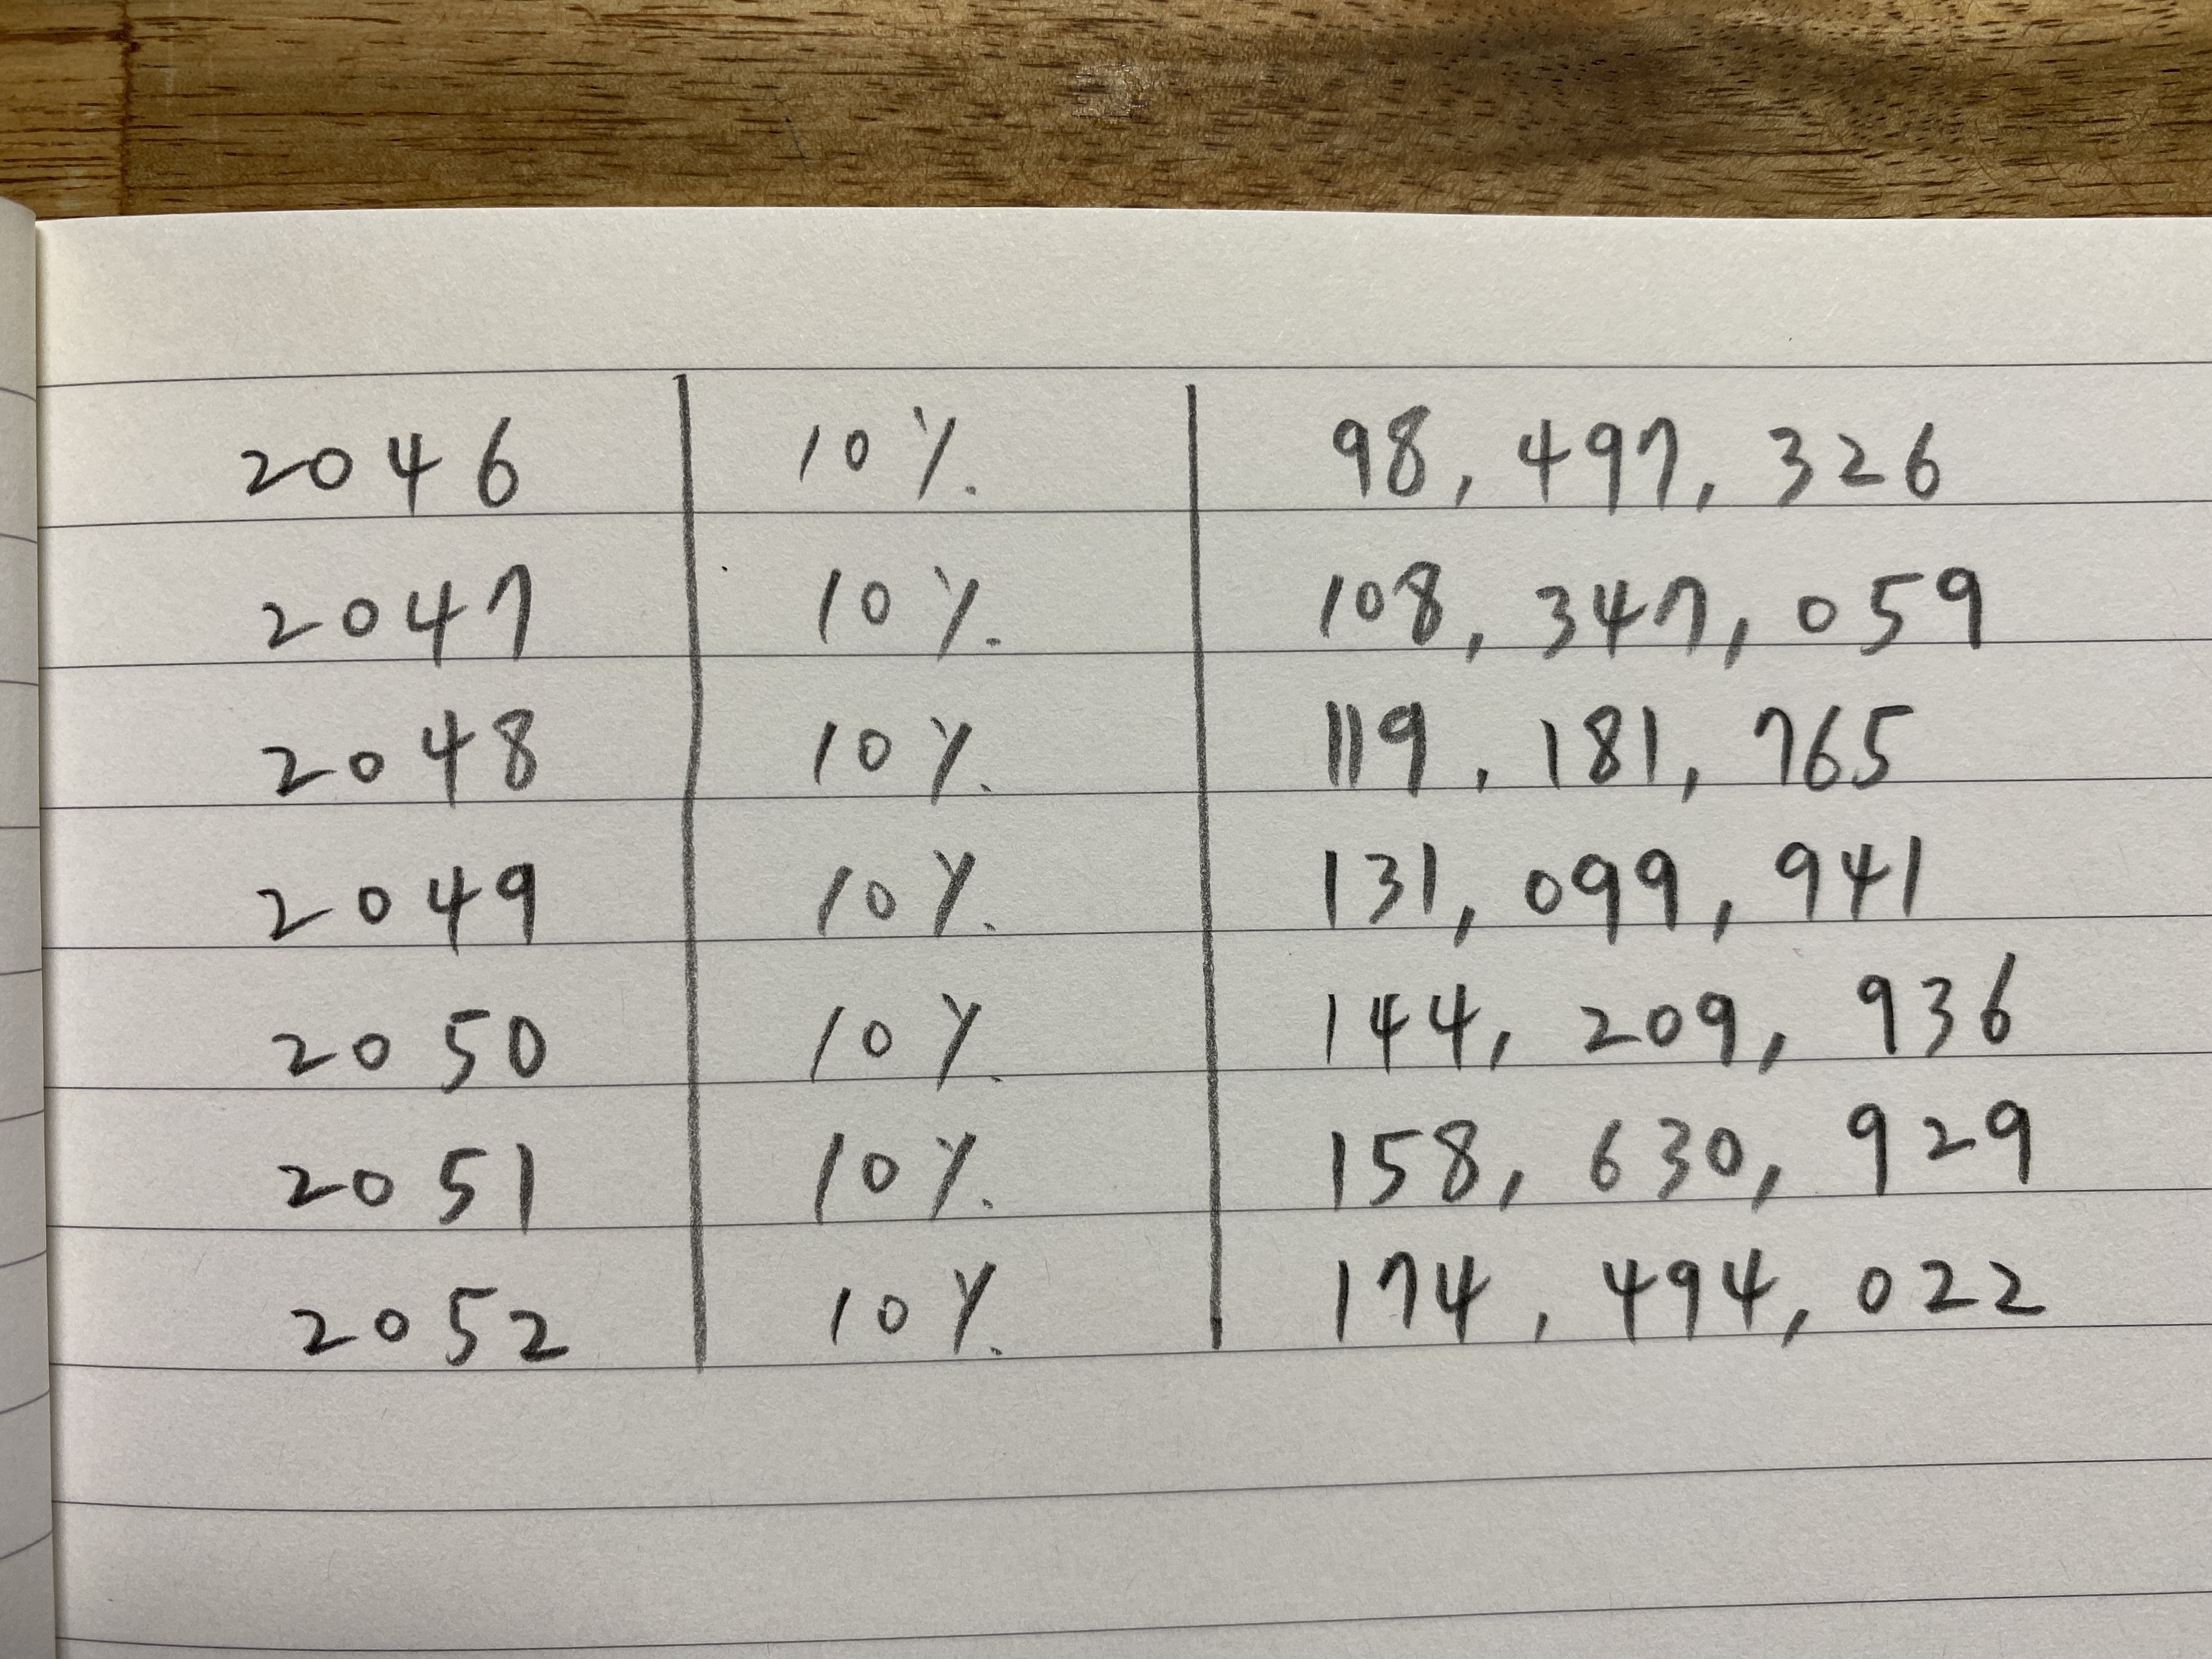 2046 10% 98,497,326
2047 10% 108,347,059
2048 10% 119,181,765
2049 10% 131,099,941
2050 10% 144,209,936
2051 10% 158,630,929
2052 10% 174,494,022